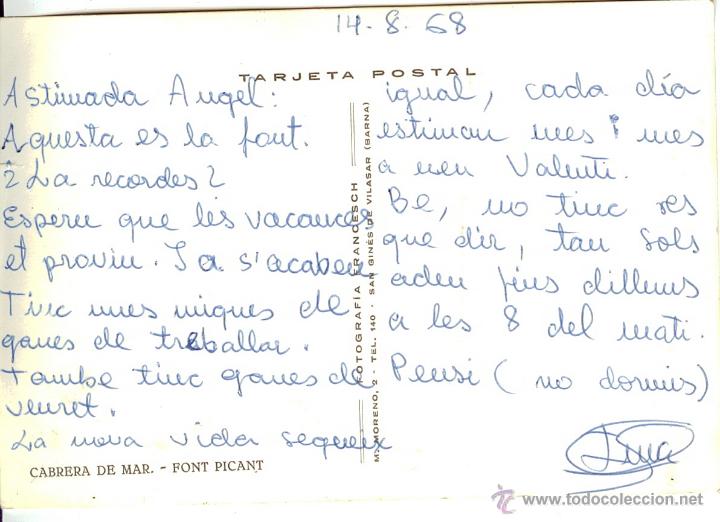 14-8-68
TARJETA POSTAL
Astimada Angel:
Aquesta es la font.
¿La recordes?
Esperu que les vacances
et proviu. Ja s'acaben
Tinc unes miques de
ganes de treballar.
Tambe tinc ganes de
veuret.
La nova vida segueix
igual, cada día
estiman mes i mes
a nen Valenti.
Be, no tinc res
que dir, tan sols
adeu fins dilluns
a les 8 del mati.
Pensi (no dormis)
FOTOGRAFÍA FRANCESCH
M. MORENO, 2 - TEL. 140 - SAN GINÉS DE VILASAR (BARNA)
CABRERA DE MAR. - FONT PICANT
www.todocoleccion.net